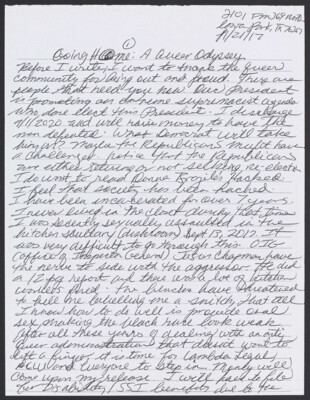 2101 FM 369 North
Iowa Park, TX 76367
9/21/17
①
Going Home: A Queer Odyssey
Before I write, I want to thank the queer
community for being out and proud. There are
people that need you near. Our President
is promoting an extreme supremacist agenda
who does elect this President. I discharge
9/1/2020 and will have nowhere to have this
man defeated. What Democrat will take
him on? Maybe the Republicans might have
a challenger. notice that the Republicans
are either retiring or not setting re-election
I want to read Donna Brazile's Hacked.
I feel that society has been hacked
I have been incarcerated for over 7 years.
I never lived in the closet during that time.
I was recently sexually assaulted in the
kitchen scullery (dishroom) Sept. 17, 2017. It
was very difficult to go through this. OIG
(Office of Inspector General) Jason Chapman have
the nerve to side with the aggressor. He did
a 12 pg report and there was a lot of kitchen
workers fired. The bunch have threatened
to kill me labelling me a snitch, that all
I know how to do well is provide oral
sex making the black race look weak.
After all these years of dealing with an anti
queer administration that doesn't want to
lift a finger, it is time for Lambda Legal,
ACLU and everyone to step in. Mainly will
come upon my release. I will have to file
for Disability/SSI benefits due to the